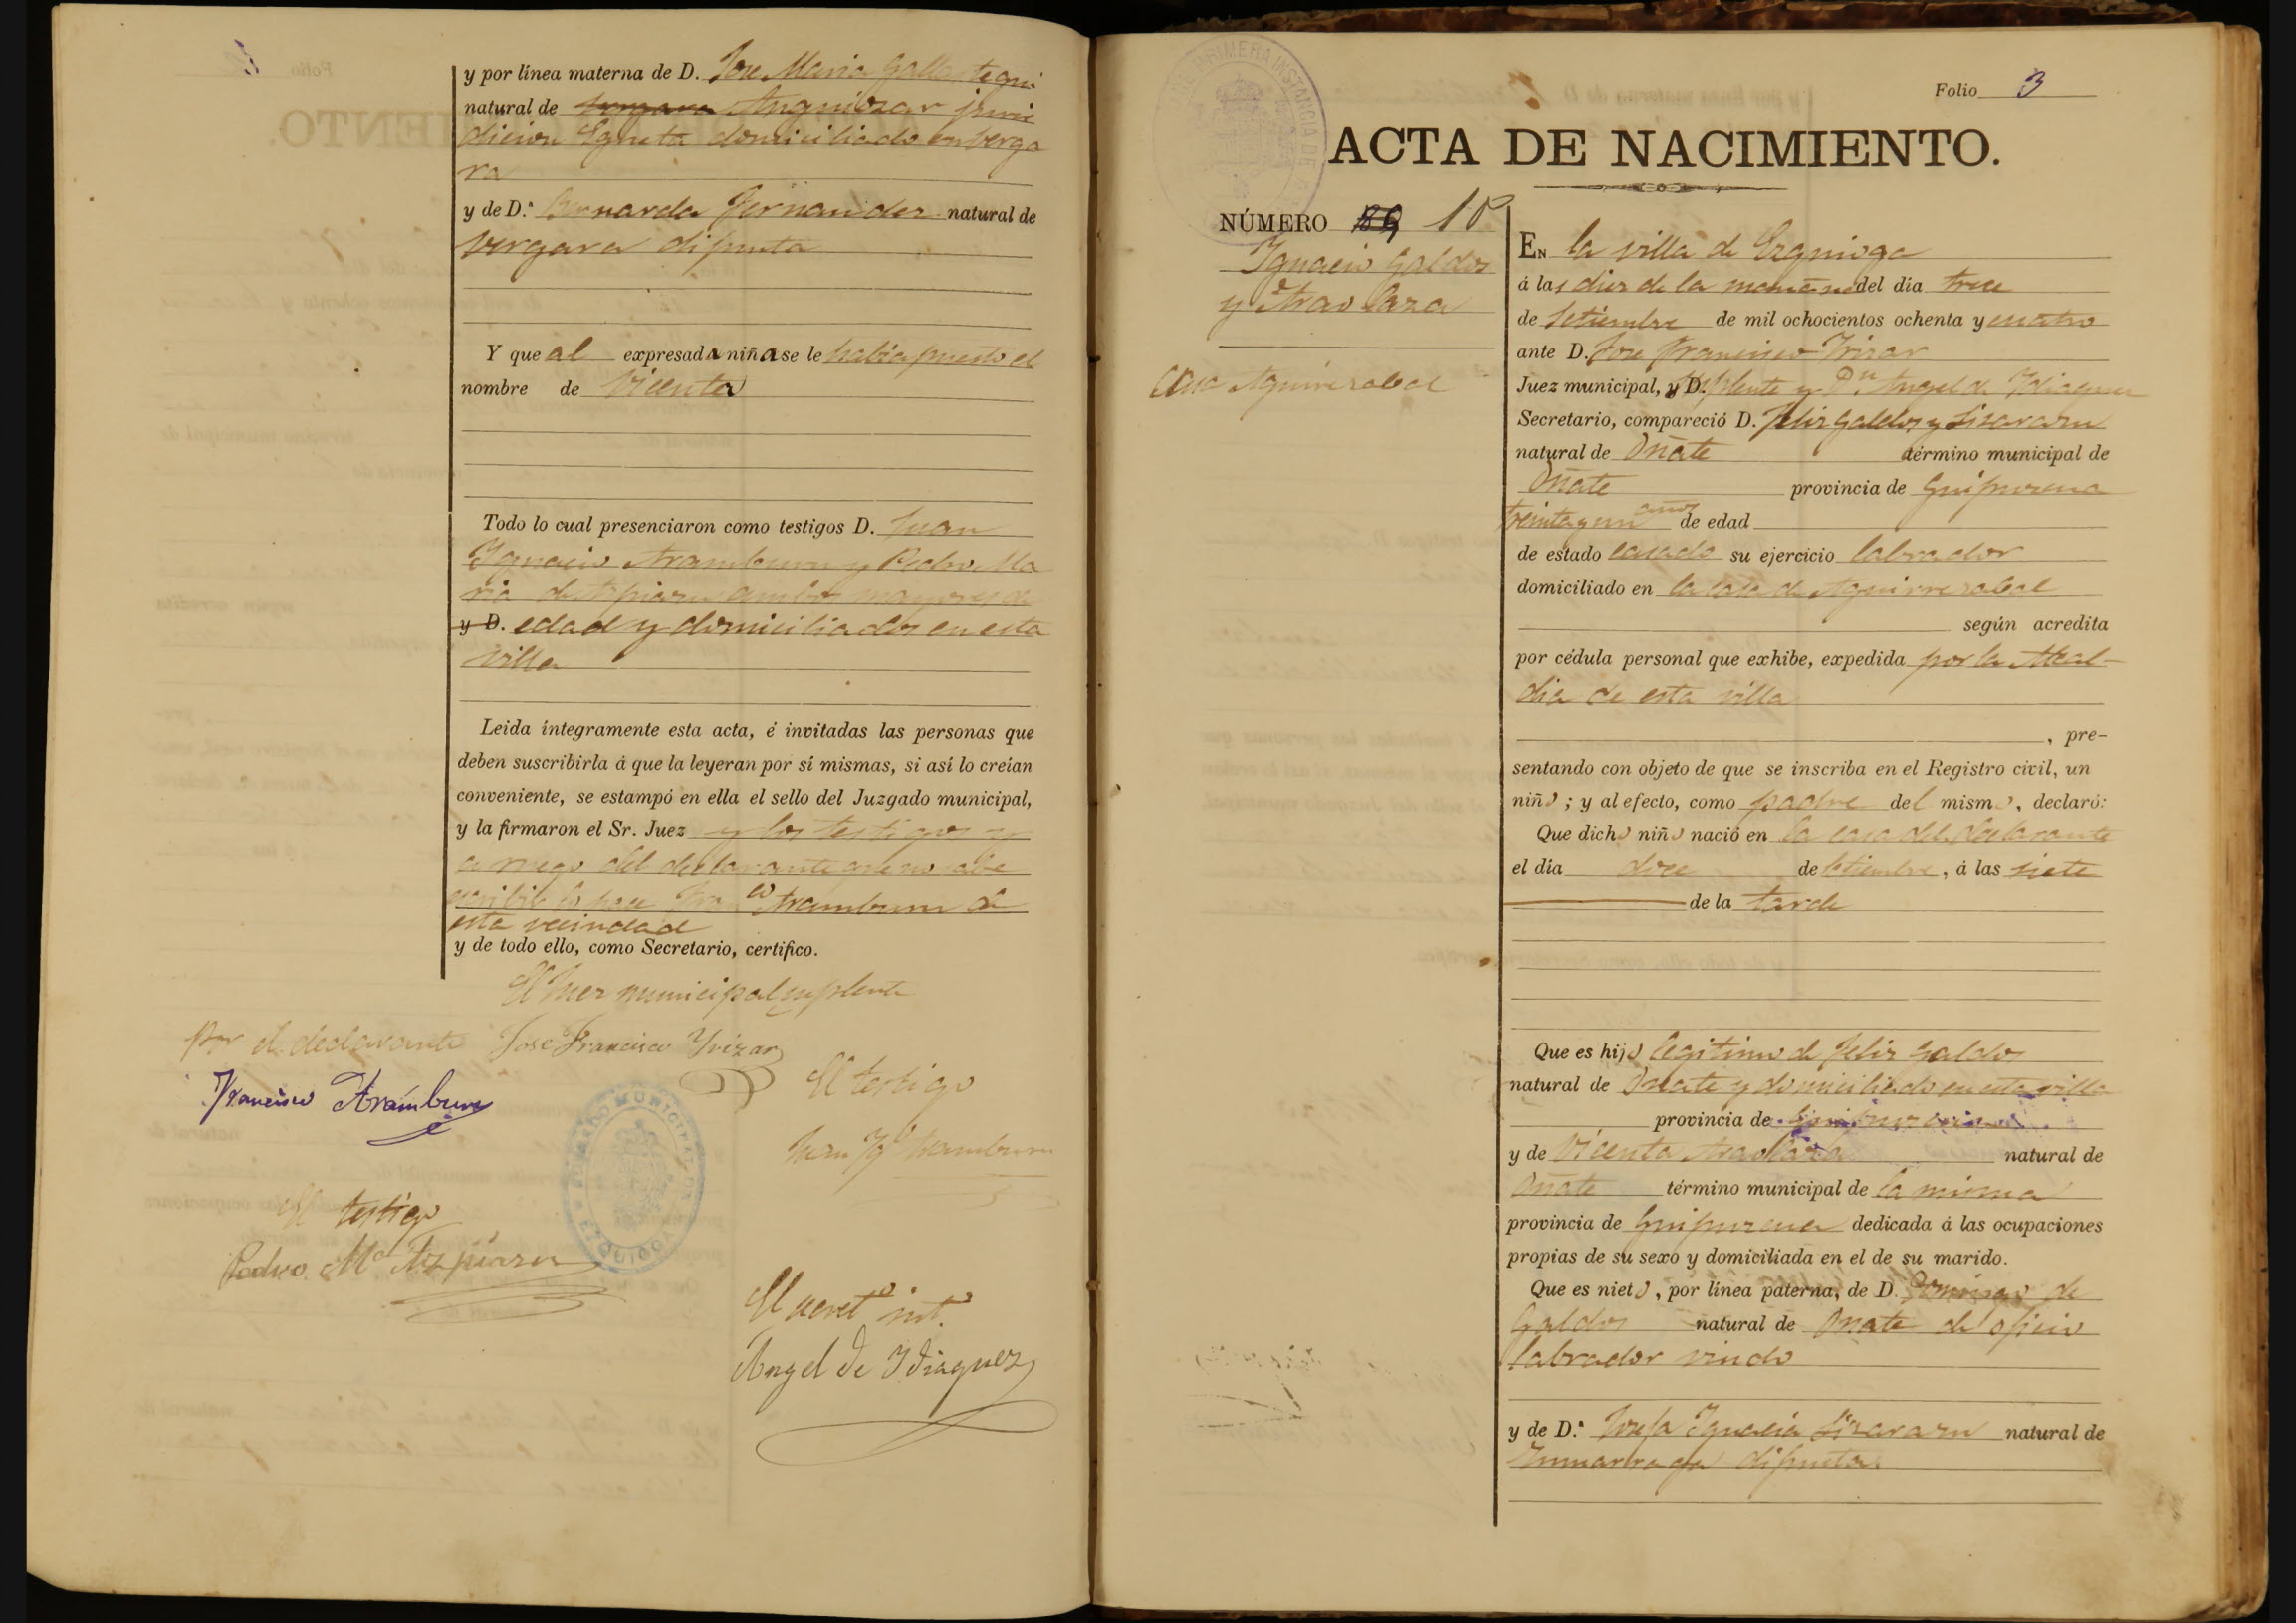 y por línea materna de D. Jose Maria Gallastegui
natural de vergara Anguiozar juris
dicion Elgueta domiciliado en Verga
ra
y de D.ª Bernarda Fernandez natural de
Vergara difunta
Y que al expresada niña se le habia puesto el
nombre de Vicenta
Todo lo cual presenciaron como testigos D. Juan
Ygnacio Aramburu y Pedro Ma
ria de Azpiazu ambos mayores de
y D. edad y domiciliados en esta
villa
Leida íntegramente esta acta, é invitadas las personas que
deben suscribirla á que la leyeran por sí mismas, si así lo creían
conveniente, se estampó en ella el sello del Juzgado municipal,
y la firmaron el Sr. Juez y los testigos y
a ruego del declarante que no sabe
escribir lo hace Fran.co Aramburu de
esta vecindad
y de todo ello, como Secretario, certifico.
El Juez municipal suplente
Por el declarante Jose Francisco Yrizar
Francisco Aramburu
El testigo
Juan Yg.o Aramburu
JUZGADO MUNICIPAL DE EZQUIOGA
El testigo
Pedro M.a Azpiazu
El secret.o int.o
Angel de Ydiaquez
Folio 3
PRIMERA INSTANCIA DE
ACTA DE NACIMIENTO.
NÚMERO 10
Ygnacio Galdos
y Araolaza
Casa Aguirrezabal
EN la villa de Ezquioga
á las diez de la mañana del día trece
de Setiembre de mil ochocientos ochenta y cuatro
ante D. Jose Francisco Yrizar
Juez municipal, y D. suplente y Dn Angel de Ydiaquez
Secretario, compareció D. Felix Galdos y Lizarazu
natural de Oñate término municipal de
Oñate provincia de Guipuzcoa
treinta y un años de edad
de estado casado su ejercicio labrador
domiciliado en la casa de Aguirrezabal
según acredita
por cédula personal que exhibe, expedida por la Alcal-
dia de esta villa
, pre-
sentando con objeto de que se inscriba en el Registro civil, un
niño; y al efecto, como padre del mismo, declaró:
Que dicho niño nació en la casa del declarante
el día doce de Setiembre, á las siete
de la tarde
Que es hijo legitimo de Felix Galdos
natural de Oñate y domiciliado en esta villa
provincia de Guipuzcoa
y de Vicenta Araolaza natural de
Oñate término municipal de la misma
provincia de Guipuzcoa dedicada á las ocupaciones
propias de su sexo y domiciliada en el de su marido.
Que es nieto, por línea paterna, de D. Domingo de
Galdos natural de Oñate de oficio
labrador viudo
y de D.ª Josefa Ygnacia Lizarazu natural de
Zumarraga difunta